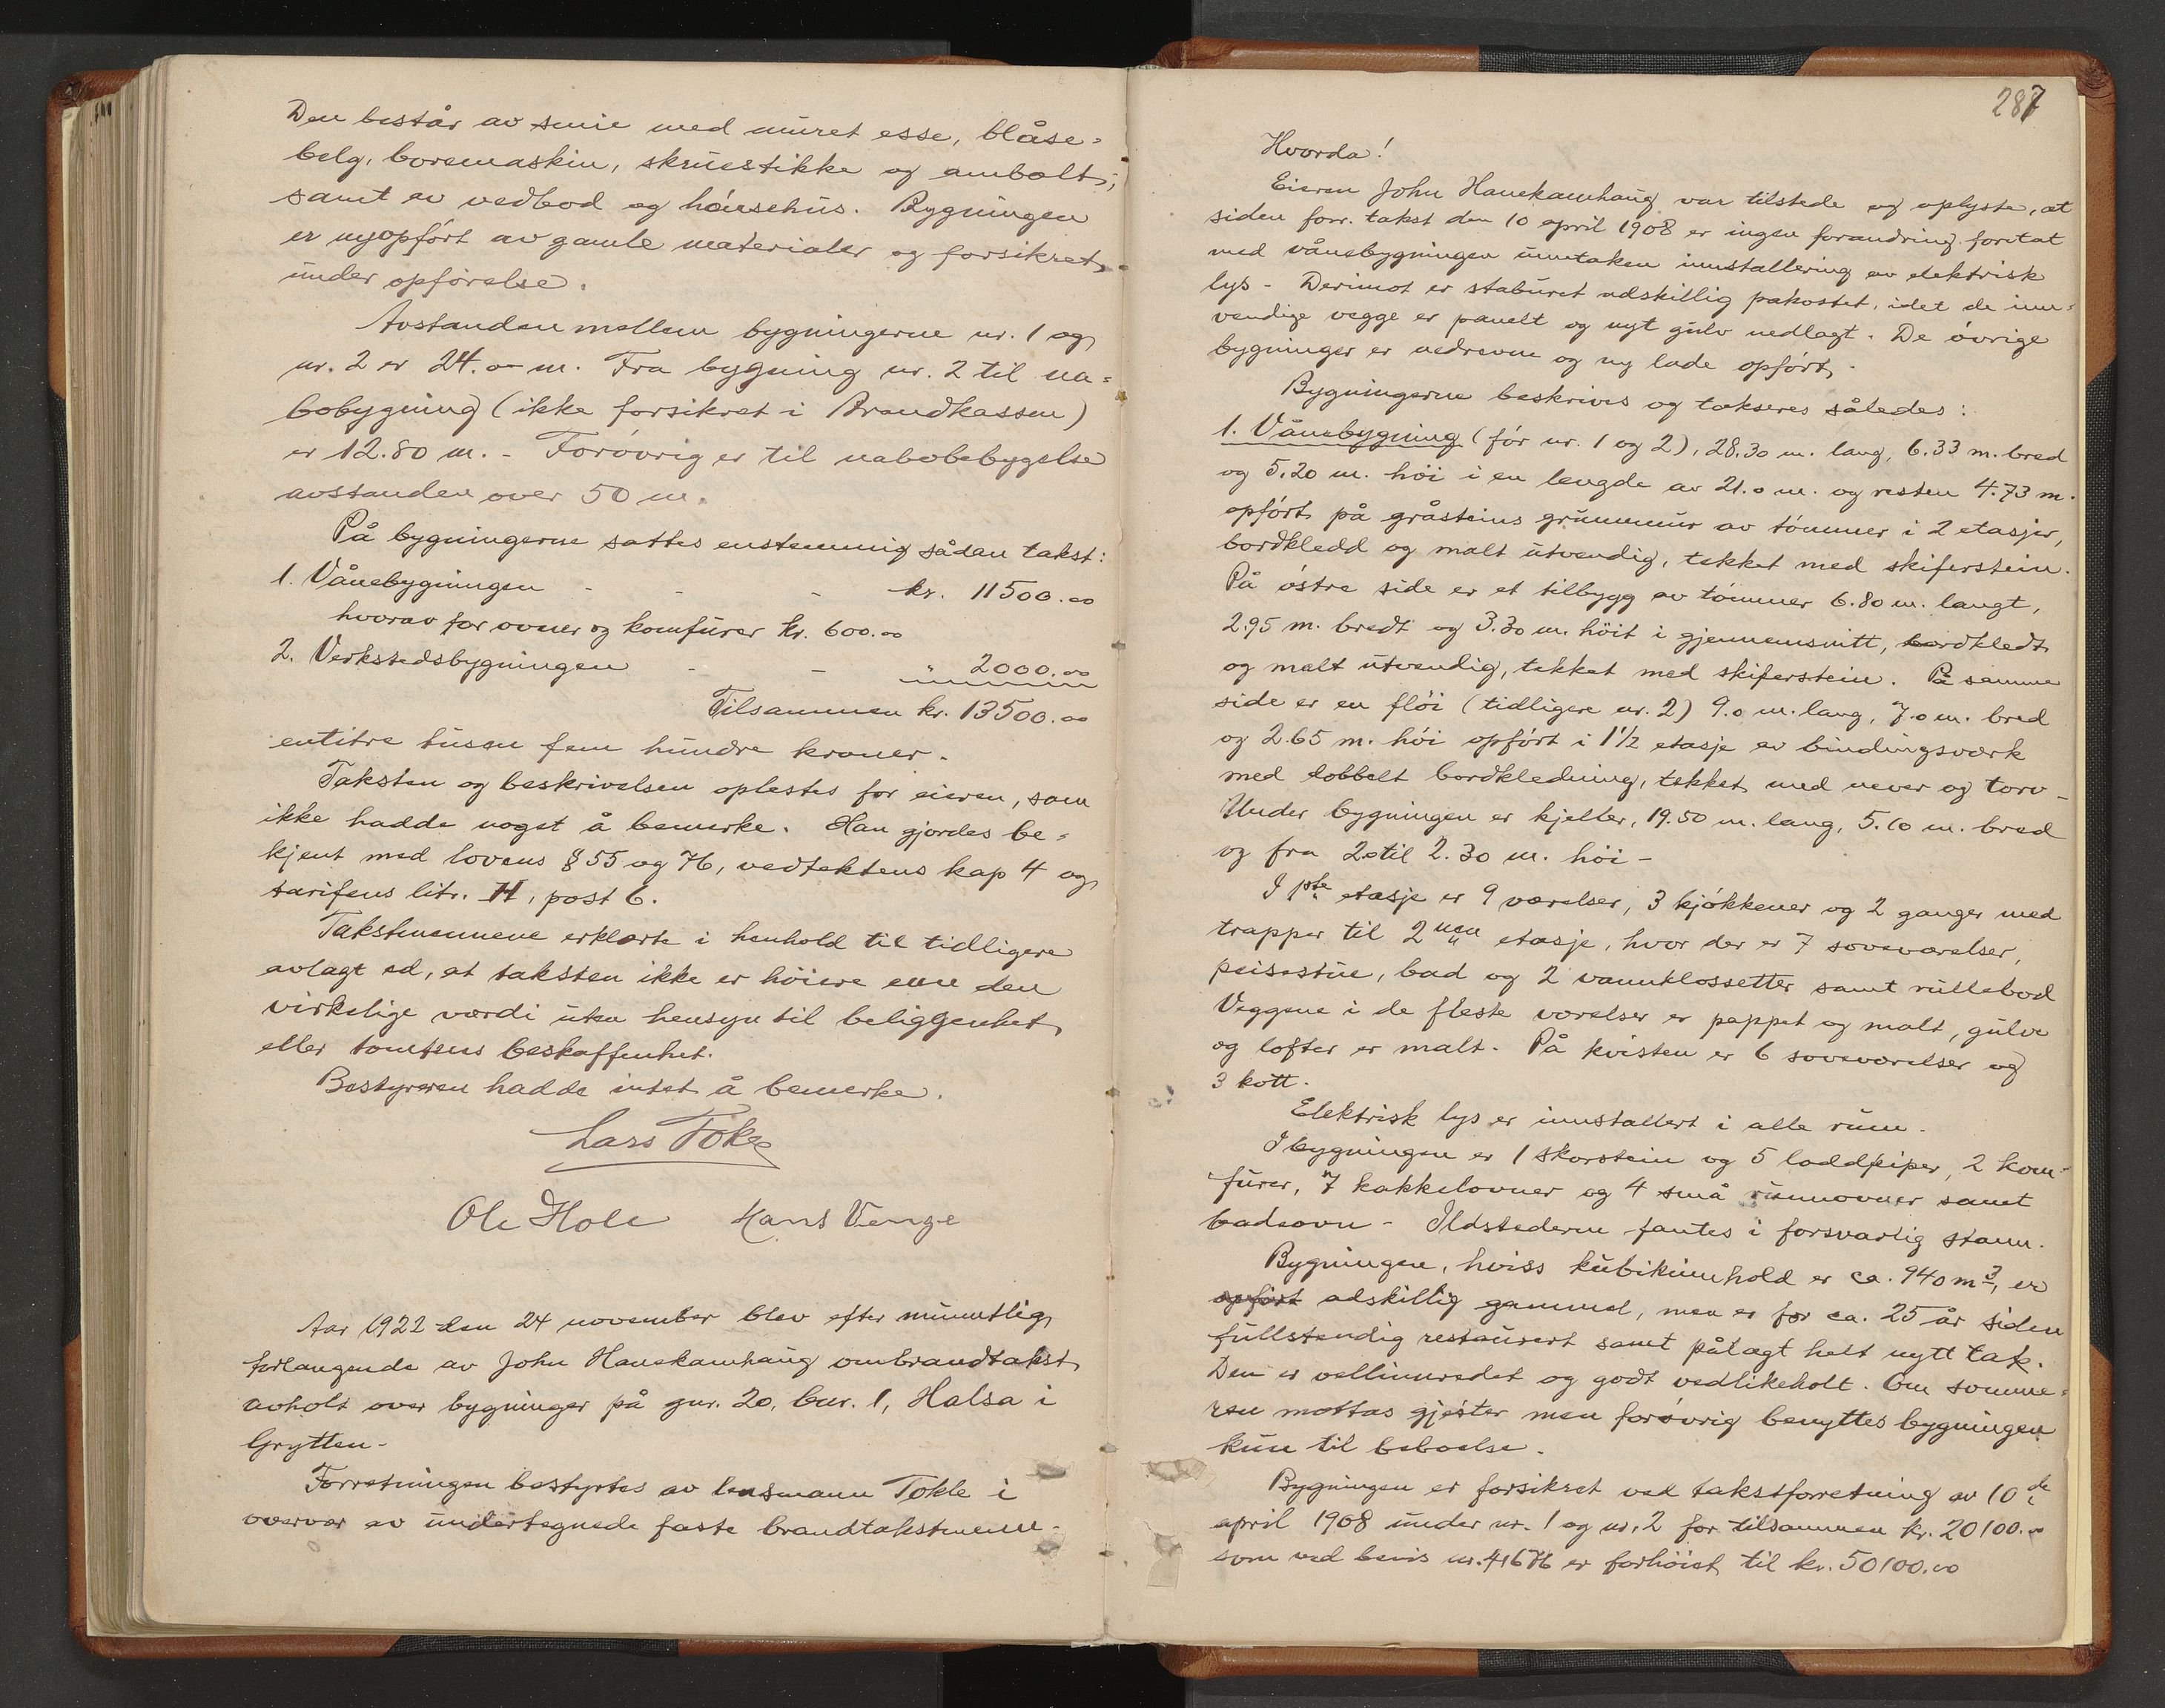 Den består av smie med muret esse, blåse=
belg, boremaskin, skruestikke og ambolt,
samt av vedbod og hønsehus. Bygningen
er nyopført av gamle materialer og forsikret
under opførelse.
Avstanden mellem bygningerne nr. 1 og
nr. 2 er 24.0 m. Fra bygning nr. 2 til na=
bobygning (ikke forsikret i Brandkassen)
er 12.80 m. - Forøvrig er til nabobebygelse
avstanden over 50 m.
På bygningerne sattes enstemmig sådan takst:
1. Vånebygningen - - - kr. 11500.00
hvorav for ovner og komfurer kr. 600.00
2. Verkstedsbygningen - - " 2000.00
Tilsammen kr. 13500.00
entitre tusen fem hundre kroner.
Taksten og beskrivelsen oplestes for eieren, som
ikke hadde noget å bemerke. Han gjordes be=
kjent med lovens § 55 og 76, vedtektens kap 4 og
tarifens litr. H, post 6.
Takstmennene erklærte i henhold til tidligere
avlagt ed, at taksten ikke er høiere enn den
virkelige værdi uten hensyn til beliggenhet
eller tomtens beskaffenhet.
Bestyreren hadde intet å bemerke.
Lars Tokle
Ole Hole Hans Venge
Aar 1922 den 24 november blev efter muntlig
forlangende av John Hanekamhaug ombrandtakst
avholt over bygninger på gnr. 20, bnr. 1, Halsa i
Grytten -
Forretningen bestyrtes av lensmann Tokle i
overvær av undertegnede faste brandtakstmenn -
287
Hvorda!
Eieren John Hanekamhaug var tilstede og oplyste, at
siden forr. takst den 10 april 1908 er ingen forandring foretat
med vånebygningen unntaken innstallering av elektrisk
lys - Derimot er staburet adskillig påkostet, idet de inn=
vendige vegge er panelt og nyt gulv nedlagt. De øvrige
bygninger er nedrevne og ny lade opført.
Bygningerne beskrives og takseres således:
1. Vånebygning (før nr. 1 og 2), 28.30 m. lang, 6.33 m. bred
og 5.20 m. høi i en lengde av 21.0 m. og resten 4.73 m.
opført på gråsteins grunnmur av tømmer i 2 etasjer,
bordkledd og malt utvendig, tekket med skiferstein.
På østre side er et tilbygg av tømmer 6.80 m. langt,
2.95 m. bredt og 3.30 m. høit i gjennemsnitt, bordkledt
og malt utvendig, tekket med skiferstein. På samme
side er en fløi (tidligere nr. 2) 9.0 m. lang, 7.0 m. bred
og 2.65 m. høi opført i 1 1/2 etasje av bindingsværk
med dobbelt bordkledning, tekket med never og torv -
Under bygningen er kjeller, 19.50 m. lang, 5.10 m. bred
og fra 2.0 til 2.30 m. høi -
I 1ste etasje er 9 værelser, 3 kjøkkener og 2 ganger med
trapper til 2nen etasje, hvor der er 7 soveværelser,
peisestue, bad og 2 vannklossetter samt rullebod
Veggene i de fleste værelser er pappet og malt, gulve
og lofter er malt. På kvisten er 6 soveværelser og
3 kott.
Elektrisk lys er innstallert i alle rum.
I bygningen er 1 skorstein og 5 loddpiper, 2 kom-
furer, 7 kakkelovner og 4 små rumovner samt
badeovn - Ildstederne fantes i forsvarlig stann.
Bygningen, hviss kubikinnhold er ca. 940 m3, er
opført adskillig gammel, men er for ca. 25 år siden
fullstendig restaurert samt pålagt helt nytt tak.
Den er vellinnredet og godt vedlikeholt. Om somme=
ren mottas gjester men forøvrig benyttes bygningen
kun til beboelse.
Bygningen er forsikret ved takstforretning av 10de
april 1908 under nr. 1 og nr. 2 for tilsammen kr. 20100.00
som ved bevis nr. 41676 er forhøiet til kr. 50100.00